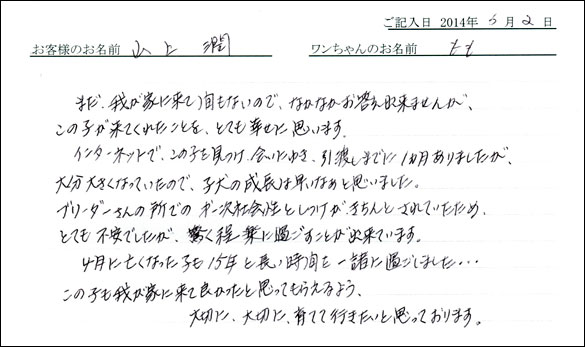 ご記入日 2014年 5月 2日
お客様のお名前 山上 潤 ワンちゃんのお名前 もも
まだ、我が家に来て間もないので、なかなかお答え出来ませんが、
この子が来てくれたことを、とても幸せに思います。
インターネットで、この子を見つけ、会いにゆき、引渡しまでに1ヵ月ありましたが、
大分大きくなっていたので、子犬の成長は早いなぁと思いました。
ブリーダーさんの所での第一次社会性としつけが、きちんとされていたため、
とても不安でしたが、驚く程楽に過ごすことが出来ています。
4月に亡くなった子も15年と長い時間を一緒に過ごしました・・・
この子も我が家に来て良かったと思ってもらえるよう、
大切に、大切に、育てて行きたいと思っております。